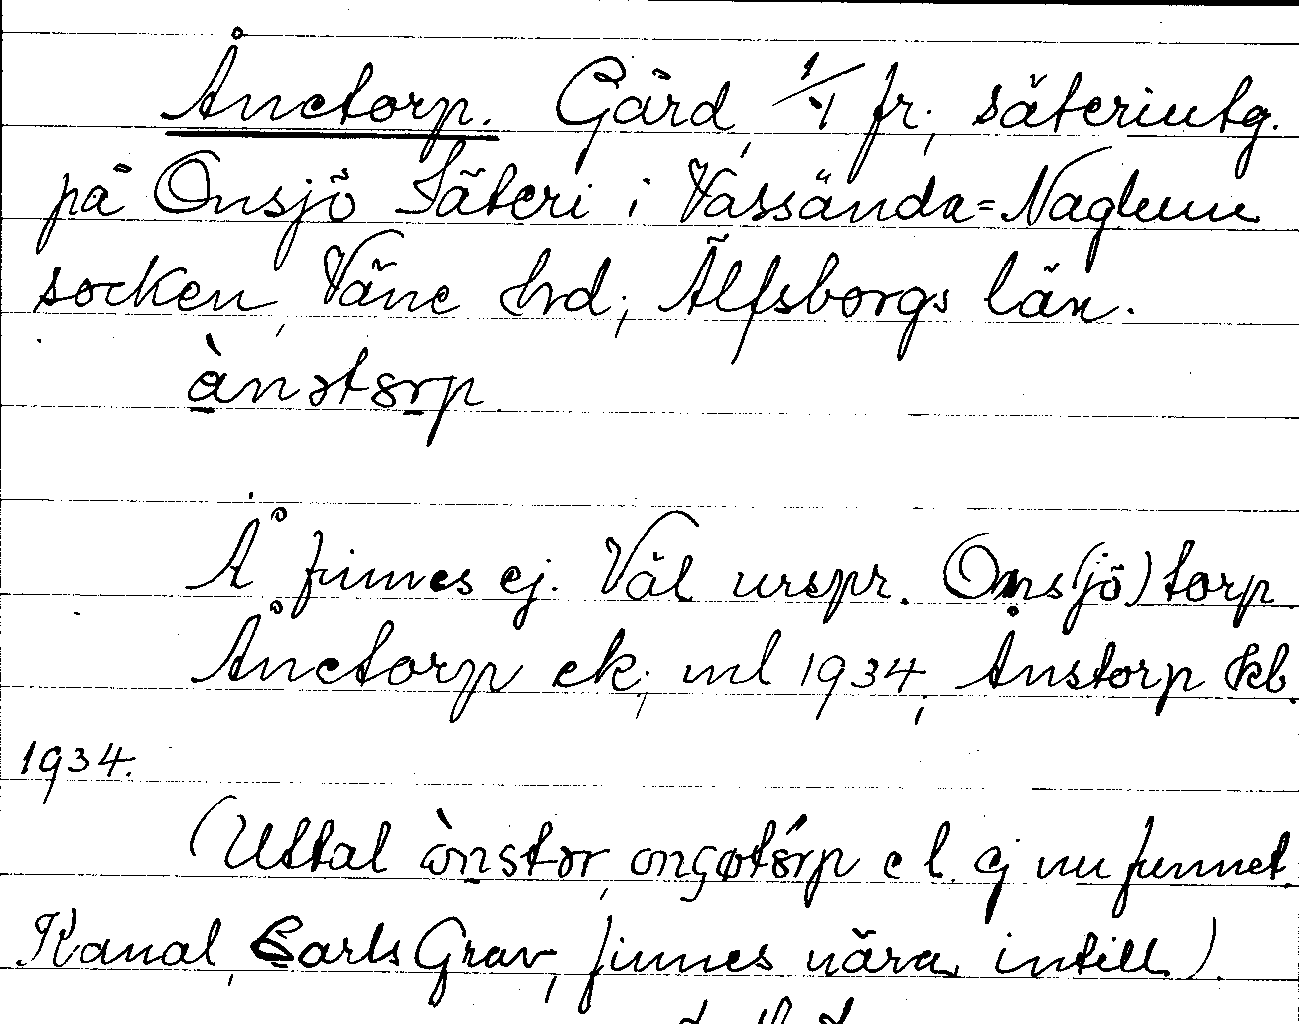 Ånetorp. Gård, 1/4 fr; säteriutg.
på Onsjö Säteri i Vassända=Naglum
socken, Väne hrd; Älfsborgs län.
ànɘtɘrp
Å finnes ej. Väl urspr. Ons(jö)torp
Ånetorp ek; ml 1934; Anstorp kb.
1934.
(Uttal ònstɘr, onsøtórp el. ej nu funnet.
Kanal, Carls Grav, finnes nära intill).